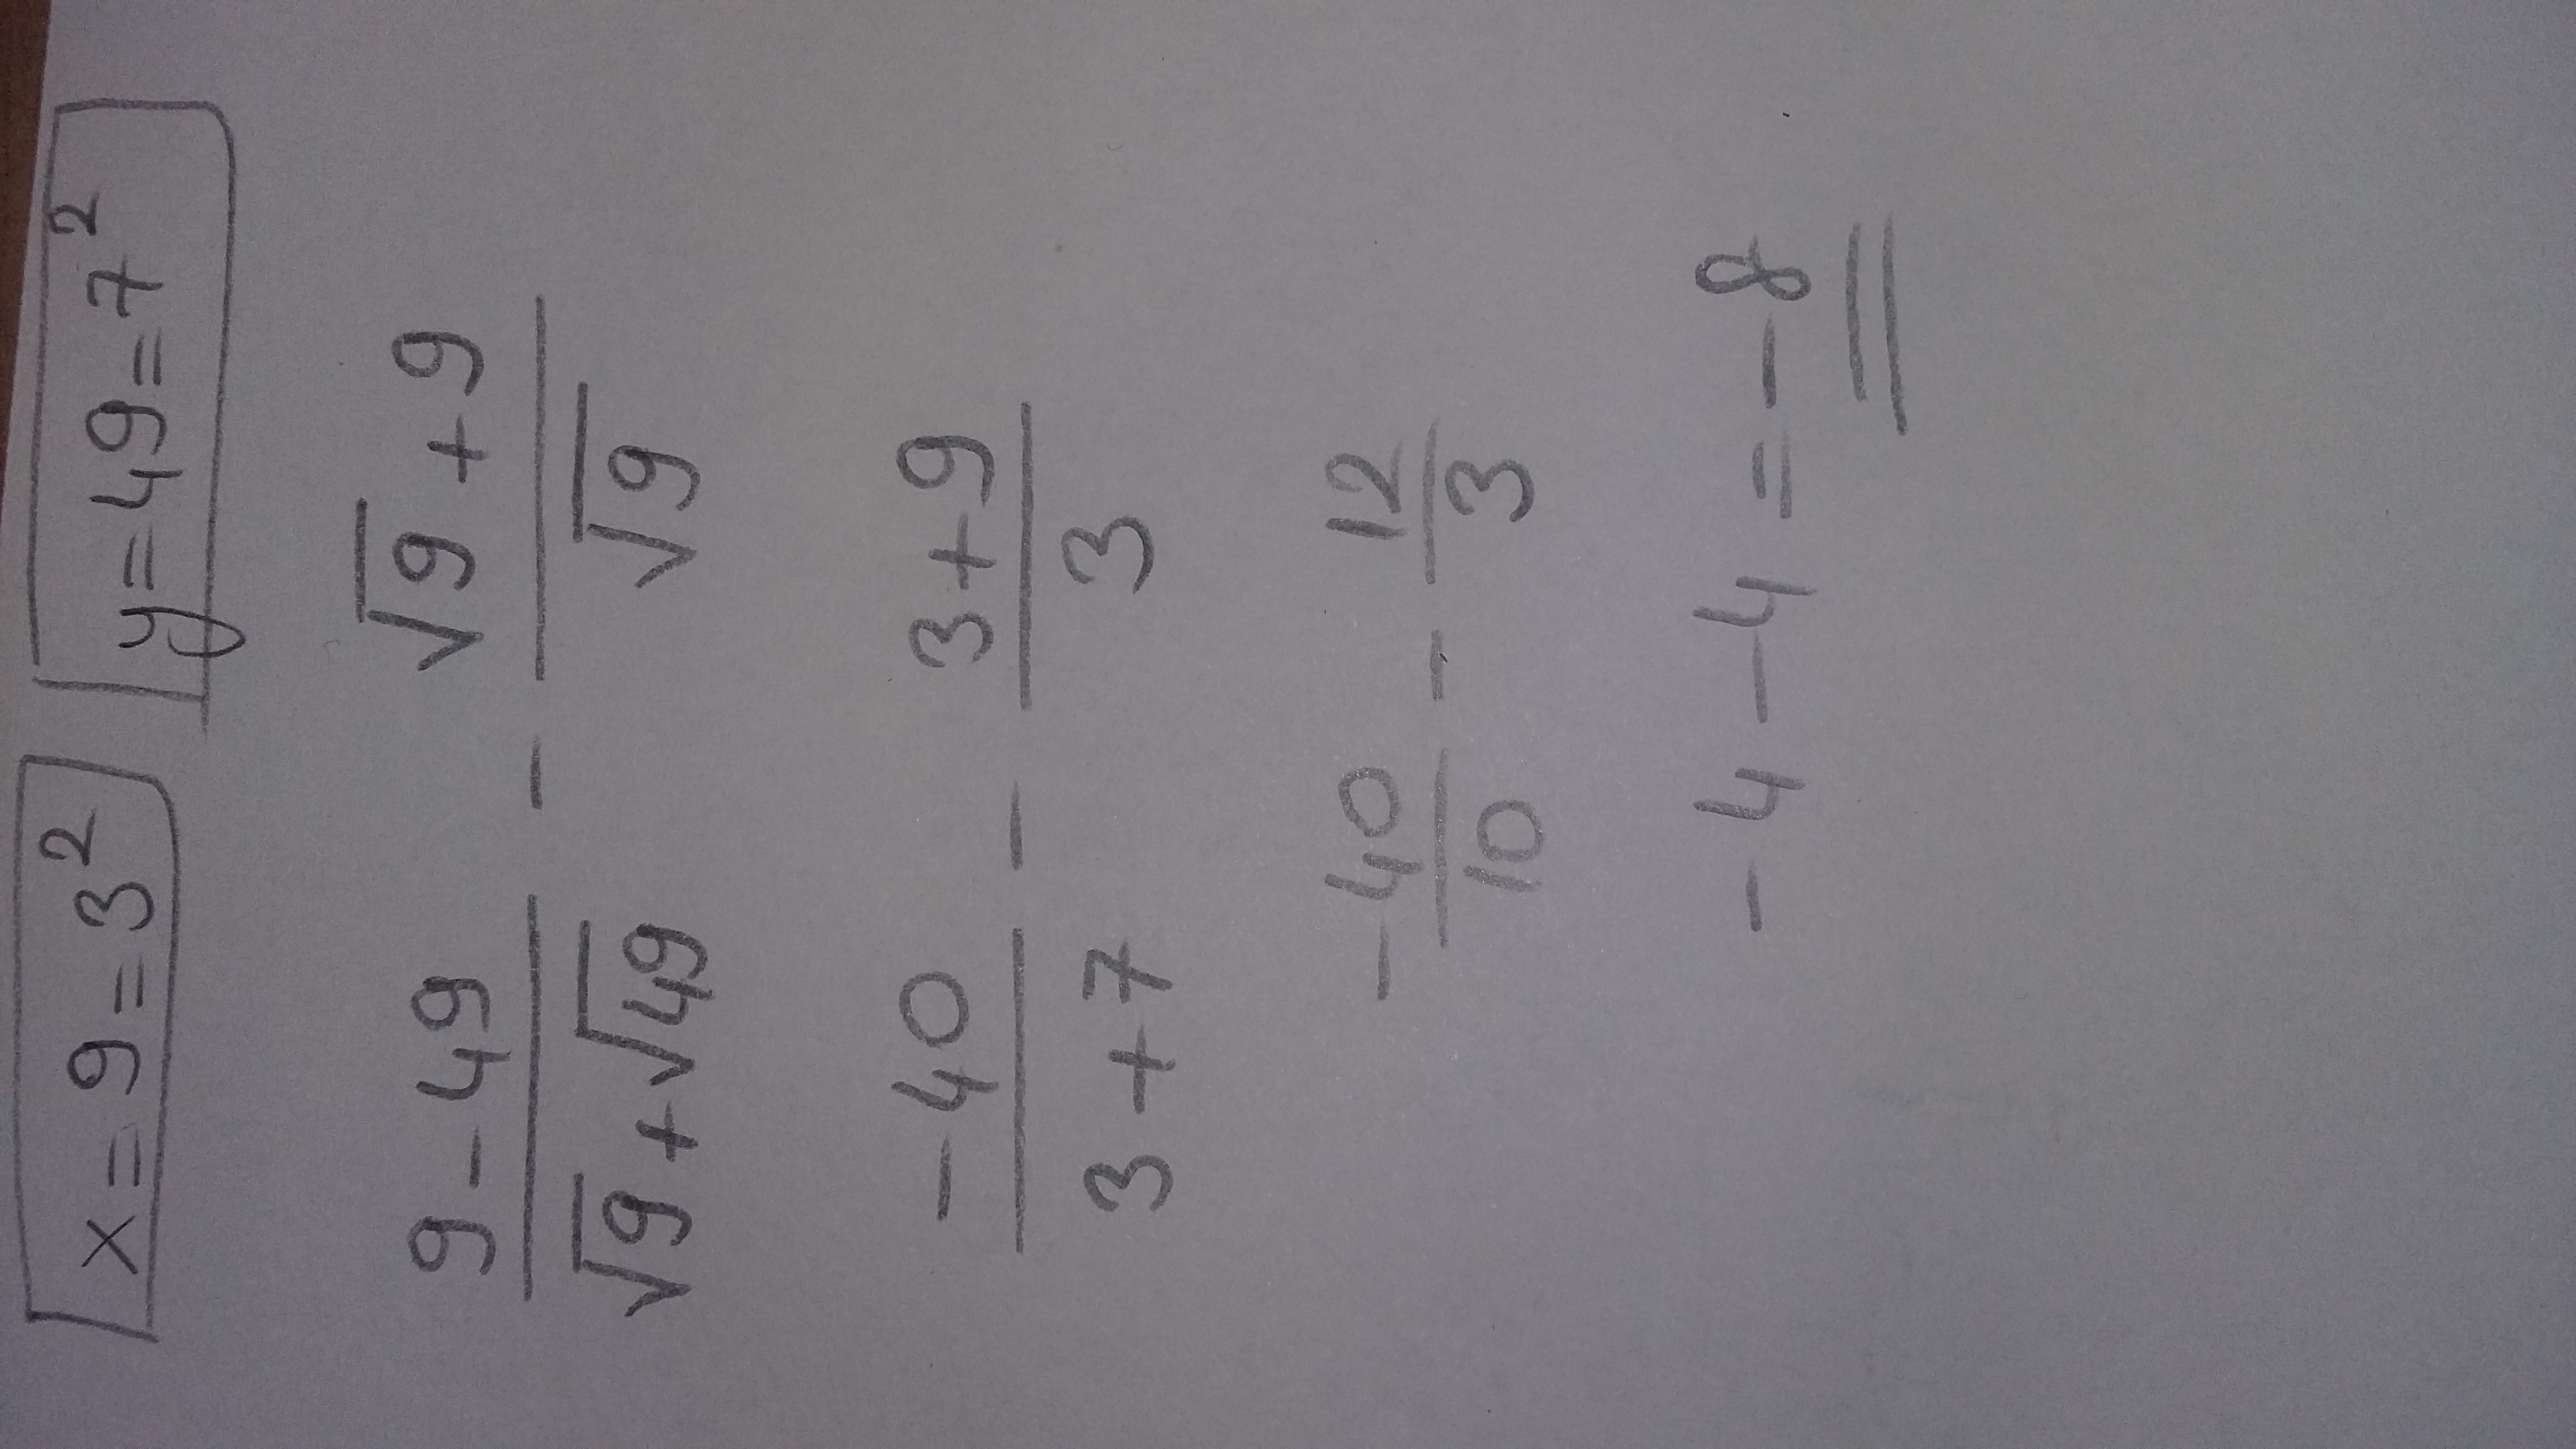 x = 9 = 3² y = 49 = 7²
(9 - 49)/(√9 + √49) - (√9 + 9)/√9
-40/(3 + 7) - (3 + 9)/3
-40/10 - 12/3
-4 - 4 = -8